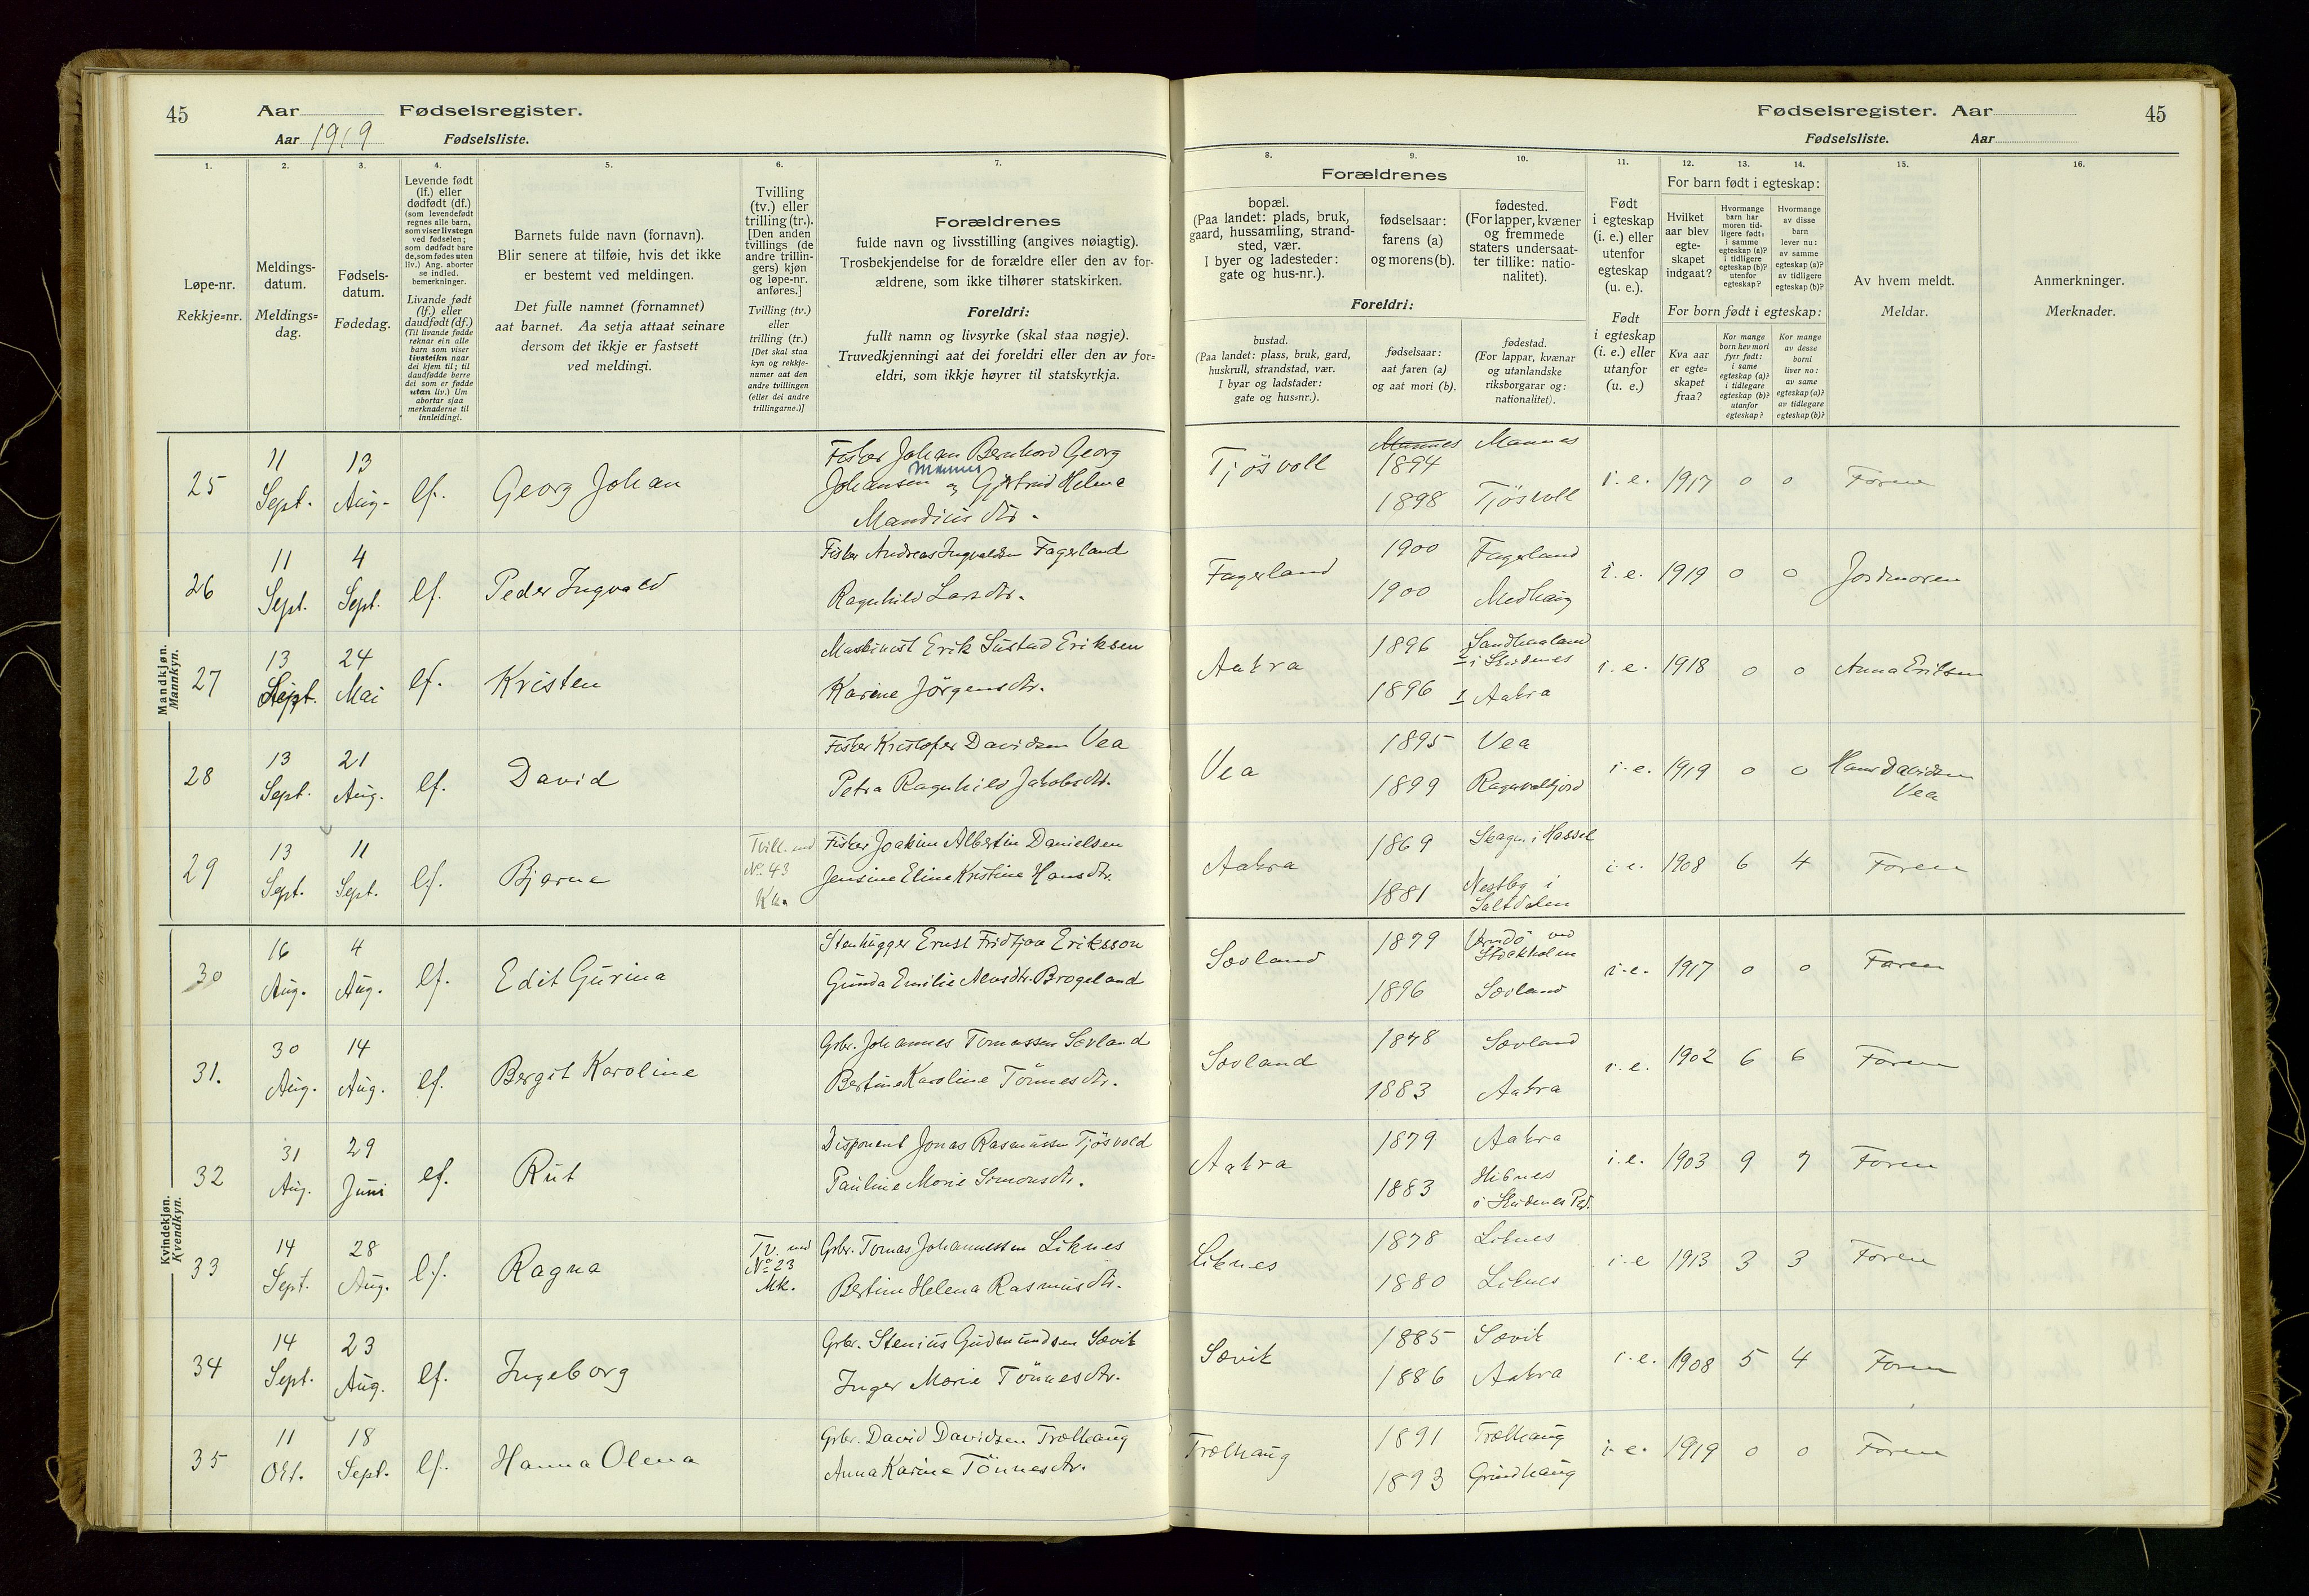 45
Aar
Fødselsregister.
Aar 1919
Fødselsliste.
Fødselsregister. Aar
45
Fødselsliste.
Aar
1.
Løpe-nr.
Rekkje=nr.
2.
Meldings-
datum.
Meldings=
dag.
3.
Fødsels-
datum.
Fødedag.
4.
Levende født
(lf.) eller
dødfødt (df.)
(som levendefødt
regnes alle barn,
som viser livstegn
ved fødselen;
som dødfødt bare
de, som fødes uten
liv.) Ang. aborter
se indled.
bemerkninger.
Livande født
(lf.) eller
daudfødt (df.)
(Til livande fødde
reknar ein alle
barn som viser
livsteikn naar
dei kjem til; til
daudfødde berre
dei som er fødde
utan liv.) Um
abortar sjaa
merknaderne til
innleidingi.
5.
Barnets fulde navn (fornavn).
Blir senere at tilføie, hvis det ikke
er bestemt ved meldingen.
Det fulle namnet (fornamnet)
aat barnet. Aa setja attaat seinare
dersom det ikkje er fastsett
ved meldingi.
6.
Tvilling
(tv.) eller
trilling (tr.).
[Den anden
tvillings (de
andre trillin-
gers) kjøn
og løpe-nr.
anføres.]
Tvilling (tv.)
eller
trilling (tr.)
[Det skal staa
kyn og rekkje-
numer aat den
andre tvillingen
(eller dei andre
trillingarne.)]
7.
Forældrenes
fulde navn og livsstilling (angives nøiagtig).
Trosbekjendelse for de forældre eller den av for-
ældrene, som ikke tilhører statskirken.
Foreldri:
fullt namn og livsyrke (skal staa nøgje).
Truvedkjenningi aat dei foreldri eller den av for=
eldri, som ikkje høyrer til statskyrkja.
Forældrenes
8.
bopæl.
(Paa landet: plads, bruk,
gaard, hussamling, strand-
sted, vær.
I byer og ladesteder:
gate og hus-nr.).
9.
fødselsaar:
farens (a)
og morens (b).
10.
fødested.
(For lapper, kvæner
og fremmede
staters undersaat-
ter tillike: natio-
nalitet).
Foreldri:
bustad.
(Paa landet: plass, bruk, gard,
huskrull, strandstad, vær.
I byar og ladstader:
gate og hus=nr.).
fødselsaar:
aat faren (a)
og aat mori (b).
fødestad.
(For lappar, kvænar
og utanlandske
riksborgarar og:
nationalitet).
11.
Født
i egteskap
(i. e.) eller
utenfor
egteskap
(u. e.).
Født
i egteskap
(i. e.) eller
utanfor
(u. e.)
12.
13.
14.
For barn født i egteskap:
Hvilket
aar blev
egte-
skapet
indgaat?
Hvormange
barn har
moren tid-
ligere født:
i samme
egteskap (a)?
i tidligere
egteskap (b)?
utenfor
egteskap?
Hvormange
av disse
barn
lever nu:
av samme
egteskap (a)?
av tidligere
egteskap (b)?
For born født i egteskap:
Kva aar
er egte=
skapet
fraa?
Kor mange
born hev mori
fyrr født:
i same
egteskap (a)?
i tidlegare
egteskap (b)?
utanfor
egteskap?
Kor mange
av desse
borni
liver no:
av same
egteskap (a)?
av tidlegare
egteskap (b)?
15.
Av hvem meldt.
Meldar.
16.
Anmerkninger.
Merknader.
Mandkjøn.
Mannkyn.
25
11 Sept.
13 Aug.
lf.
Georg Johan
Fisker Johan Bernhard Georg
Johansen Mannes og Gjertrud Helene
Mandius dtr.
Tjösvoll
Mannes
1894
Mannes
1898
Tjösvoll
i. e.
1917
0
0
Faren
26
11 Sept.
4 Sept.
lf.
Peder Ingvald
Fisker Andreas Ingvaldsen Fagerland
Ragnhild Lars dtr.
Fagerland
1900
Fagerland
1900
Medhaug
i. e.
1919
0
0
Jordmoren
27
13 Sept.
24 Mai
lf.
Kristen
Maskinist Erik Sustad Eriksen
Karine Jörgens dtr.
Aakra
1896
Sandhaaland
i Skudenes
1896
Aakra
i. e.
1918
0
0
Anna Eriksen
28
13 Sept.
21 Aug.
lf.
David
Fisker Kristofer Davidsen Vea
Petra Ragnhild Jakobs dtr.
Vea
1895
Vea
1899
i. e.
1919
0
0
Hans Davidsen
Vea
29
13 Sept.
11 Sept.
lf.
Bjarne
Tvill. med
No 43
Kk.
Fisker Joakim Albertin Danielsen
Jensine Eline Kristine Hans dtr.
Aakra
1869
Skagen i Hassel
1881
Nestby i
Saltdalen
i. e.
1908
6
4
Faren
Kvindekjøn.
Kvendkyn.
30
16 Aug.
4 Aug.
lf.
Edit Gurina
Stenhugger Ernst Fridtjov Eriksson
Gunda Emilie Aensdtr. Brogeland
Sævland
1879
Vermdö ved
Stockholm
1896
Sævland
i. e.
1917
0
0
Faren
31.
30 Aug.
14 Aug.
lf.
Bergit Karoline
Grbr. Johannes Tomassen Sævland
Bertine Karoline Tönnes dtr.
Sævland
1878
Sævland
1883
Aakra
i. e.
1902
6
6
Faren
32
31 Aug.
29 Juni
lf.
Rut
Disponent Jonas Rasmussen Tjösvold
Pauline Marie Simonsdtr.
Aakra
1879
Aakra
1883
Hibnes
i Skudenes Pd.
i. e.
1903
9
7
Faren
33
14 Sept.
28 Aug.
lf.
Ragna
Tv. med
No 23
Mk.
Grbr. Tomas Johannessen Liknes
Bertine Helena Rasmus dtr.
Liknes
1878
Liknes
1880
Liknes
i. e
1913
3
3
Faren
34
14 Sept.
23 Aug.
lf.
Ingeborg
Grbr. Stenius Gudmundsen Sævik
Inger Marie Tönnes dtr.
Sævik
1885
Sævik
1886
Aakra
i. e.
1908
5
4
Faren
35
11 Okt.
18 Sept.
lf.
Hanna Olena
Grbr. David Davidsen Trælhaug
Anna Karine Tönnes dtr.
Trælhaug
1891
Trælhaug
1893
Grindhaug
i. e.
1919
0
0
Faren